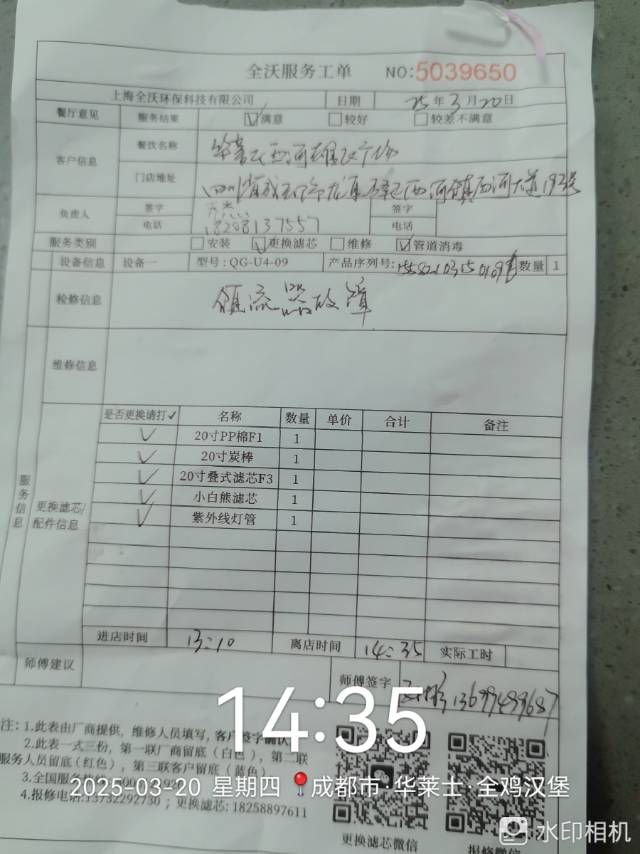 全沃服务工单 NO:5039650
上海全沃环保科技有限公司 日期 25年3月20日
餐厅意见 服务结果 ☑满意 □较好 □较差不满意
客户信息 餐饮名称 华莱士西河
门店地址 四川省成都市龙泉驿区西河镇西河大道192号
负责人 签字 签字
电话 18208137557 电话
服务类别 □安装 ☑更换滤芯 □维修 ☑管道消毒
设备信息 设备一 型号:QG-U4-09 产品序列号: 数量 1
检修信息 恒流器故障
维修信息
服务信息 更换滤芯/配件信息
是否更换请打✓ 名称 数量 单价 合计 备注
✓ 20寸PP棉F1 1
✓ 20寸炭棒 1
✓ 20寸叠式滤芯F3 1
✓ 小白熊滤芯 1
✓ 紫外线灯管 1
进店时间 13:10 离店时间 14:35 实际工时
师傅建议 师傅签字 13699499687
14:35
注:1.此表由厂商提供,维修人员填写,客户签字确认
2.此表一式三份,第一联厂商留底(白色),第二联
服务人员留底(红色),第三联客户留底(蓝色)
3.全国服务热线
2025-03-20 星期四 成都市·华莱士·全鸡汉堡
4.报修电话:13732292730;更换滤芯:18258897611
更换滤芯微信 报修微信
水印相机